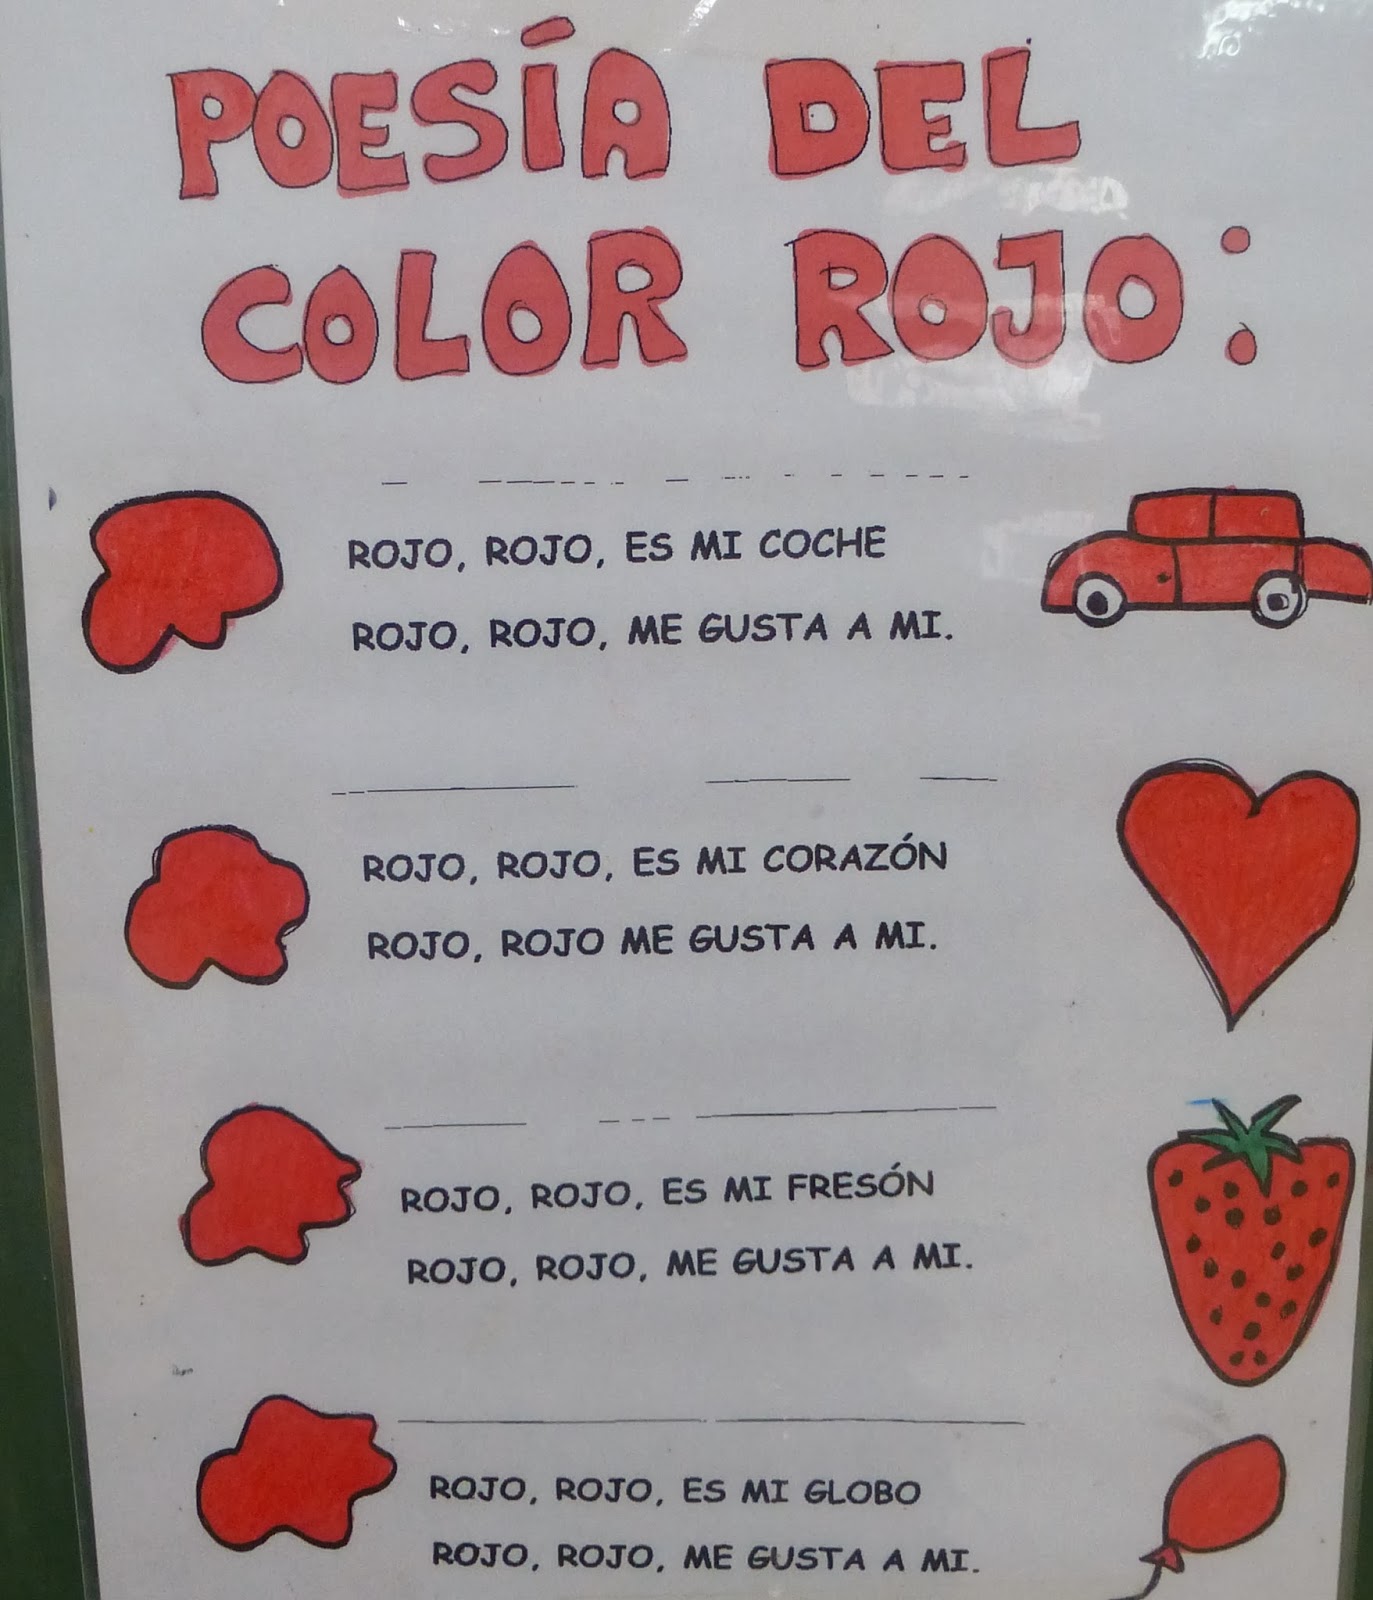 POESÍA DEL
COLOR ROJO:
ROJO, ROJO, ES MI COCHE
ROJO, ROJO, ME GUSTA A MI.
ROJO, ROJO, ES MI CORAZÓN
ROJO, ROJO ME GUSTA A MI.
ROJO, ROJO, ES MI FRESÓN
ROJO, ROJO, ME GUSTA A MI.
ROJO, ROJO, ES MI GLOBO
ROJO, ROJO, ME GUSTA A MI.